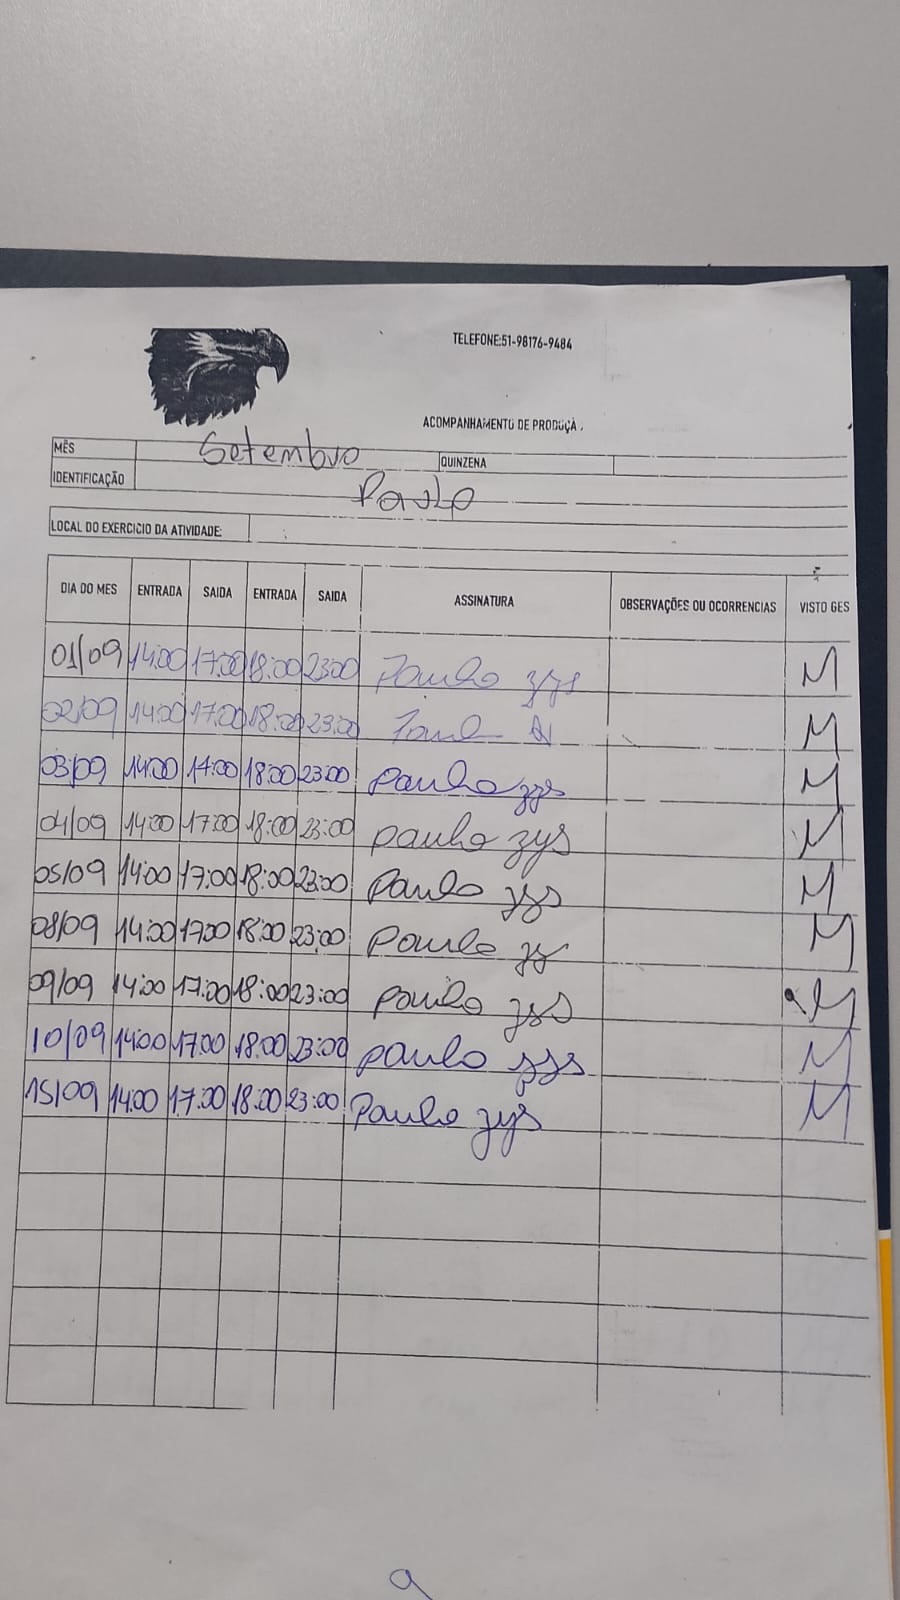 TELEFONE:51-98176-9484
ACOMPANHAMENTO DE PRODUÇÃ
MÊS Setembro QUINZENA
IDENTIFICAÇÃO Paulo
LOCAL DO EXERCICIO DA ATIVIDADE:
DIA DO MES ENTRADA SAIDA ENTRADA SAIDA ASSINATURA OBSERVAÇÕES OU OCORRENCIAS VISTO GES
01/09 14:00 17:00 18:00 23:00 Paulo M
02/09 14:00 17:00 18:00 23:00 M
03/09 14:00 17:00 18:00 23:00 Paulo M
04/09 14:00 17:00 18:00 23:00 Paulo M
05/09 14:00 17:00 18:00 23:00 Paulo M
08/09 14:00 17:00 18:00 23:00 Paulo M
09/09 14:00 17:00 18:00 23:00 Paulo M
10/09 14:00 17:00 18:00 23:00 Paulo M
15/09 14:00 17:00 18:00 23:00 Paulo M
9